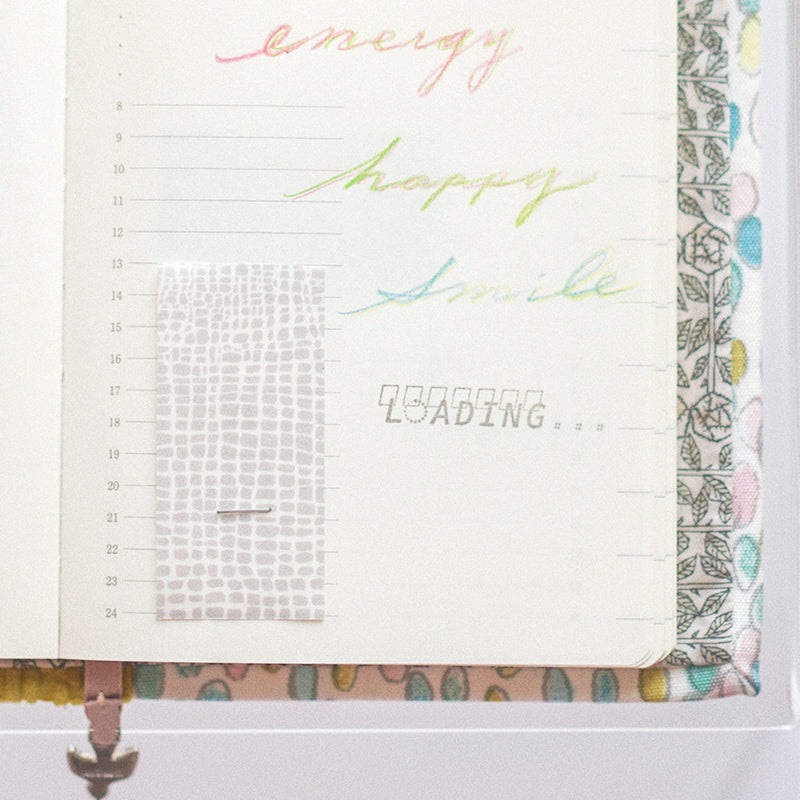 energy
8
9
10
happy
11
12
13
smile
14
15
16
17
LOADING...
18
19
20
21
22
23
24